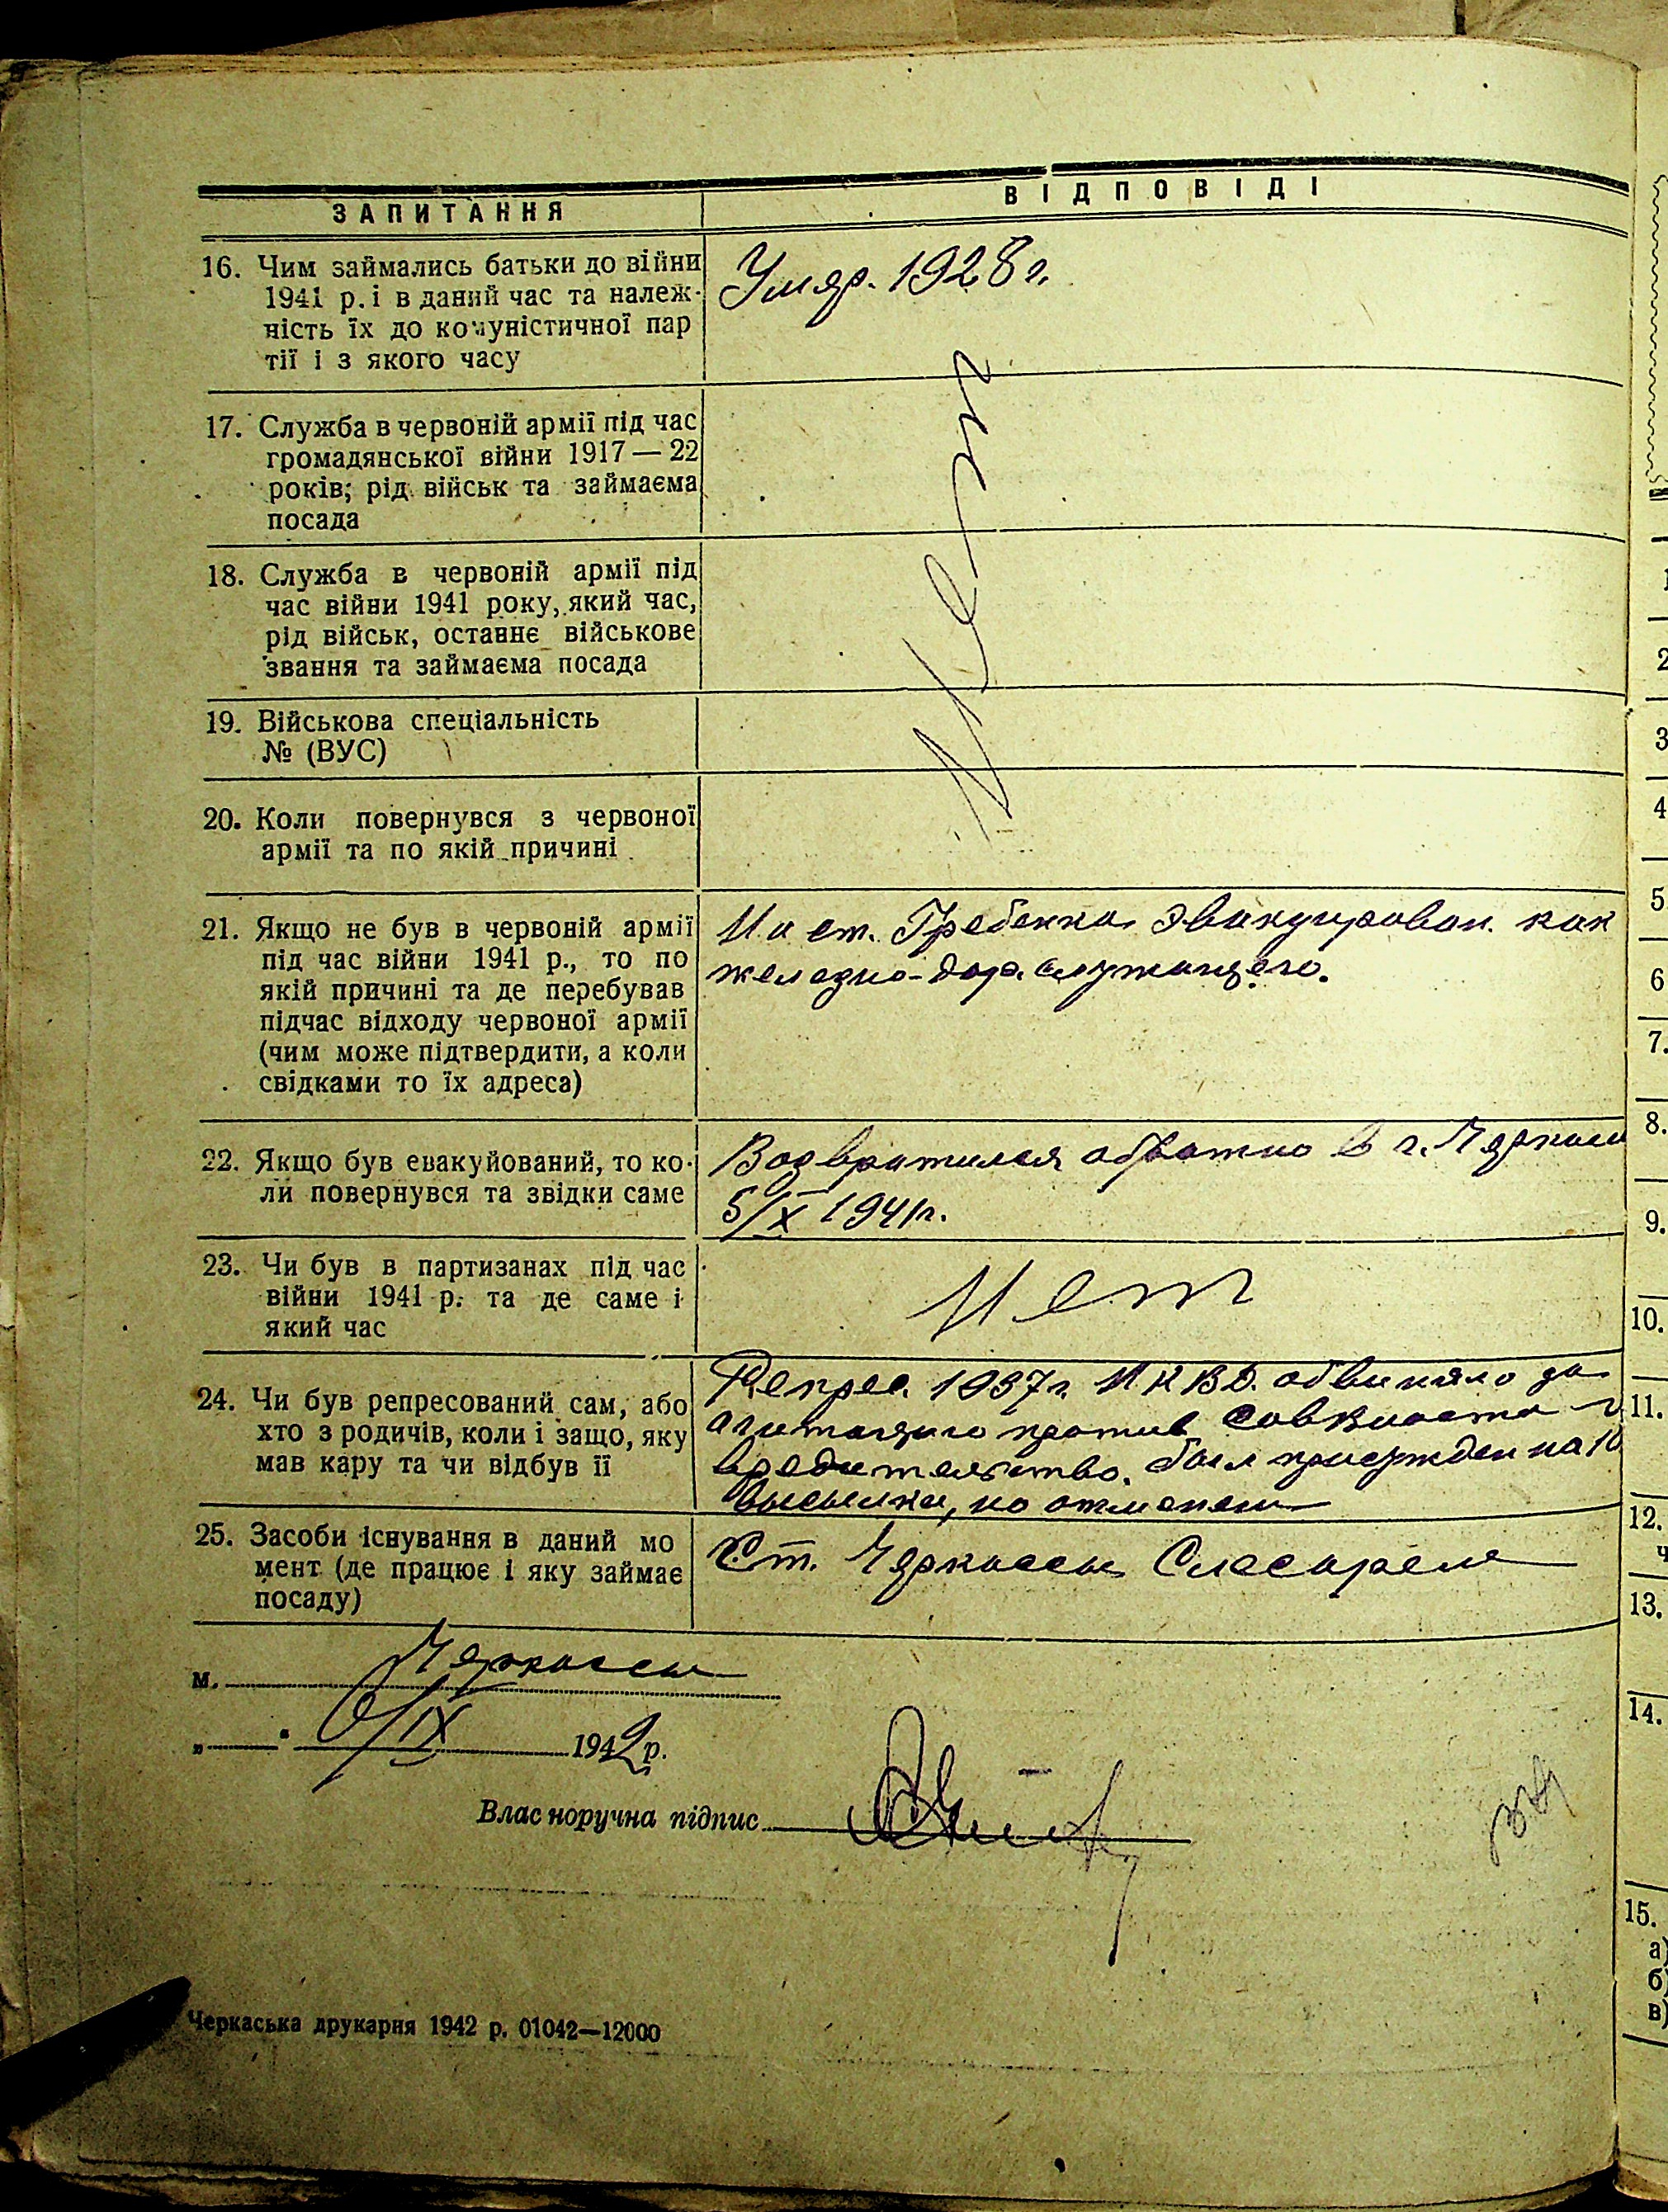 ЗАПИТАННЯ
ВІДПОВІДІ
16. Чим займались батьки до війни
1941 р. і в даний час та належ-
ність їх до комуністичної пар
тії і з якого часу
Умер. 1928 г.
17. Служба в червоній армії під час
громадянської війни 1917 — 22
років; рід військ та займаєма
посада
18. Служба в червоній армії під
час війни 1941 року, який час,
рід військ, останнє військове
звання та займаєма посада
19. Військова спеціальність
№ (ВУС)
20. Коли повернувся з червоної
армії та по якій причині
Нет
21. Якщо не був в червоній армії
під час війни 1941 р., то по
якій причині та де перебував
підчас відходу червоної армії
(чим може підтвердити, а коли
свідками то їх адреса)
На ст. Гребенка эвакуирован. как
железно-дор. служащего.
22. Якщо був евакуйований, то ко-
ли повернувся та звідки саме
Возвратился обратно в г. Черкассы
5/IX 1941г.
23. Чи був в партизанах під час
війни 1941 р. та де саме і
який час
Нет
24. Чи був репресований сам, або
хто з родичів, коли і защо, яку
мав кару та чи відбув її
Репрес. 1937г. НКВД. обвиняло за
агитацию против Соввласти и
вредительство. был присужден на 10
высылки, но отменен
25. Засоби існування в даний мо
мент (де працює і яку займає
посаду)
Ст. Черкассы Слесарем
м. Черкассы
„ " /IX 1942 р.
Власноручна підпис
Черкаська друкарня 1942 р. 01042—12000
1
2
3
4
5.
6
7.
8.
9.
10.
11.
12.
ч
13.
14.
15.
а)
б)
в)